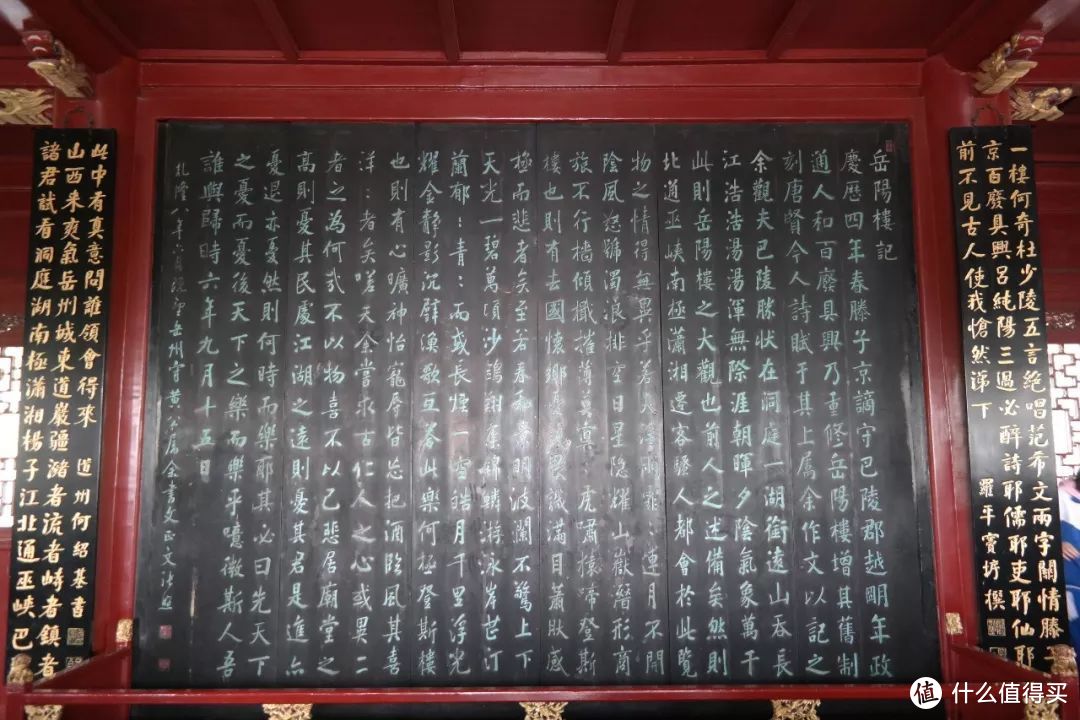 一樓何奇杜少陵五言絕唱范希文兩字關情滕子
京百廢具興呂純陽三過必醉詩耶儒耶吏耶仙耶
前不見古人使我愴然涕下 羅平竇垿撰
岳陽樓記
慶歷四年春滕子京謫守巴陵郡越明年政
通人和百廢具興乃重修岳陽樓增其舊制
刻唐賢今人詩賦于其上屬余作文以記之
余觀夫巴陵勝狀在洞庭一湖銜遠山吞長
江浩浩湯湯渾無際涯朝暉夕陰氣象萬千
此則岳陽樓之大觀也前人之述備矣然則
北通巫峽南極瀟湘遷客騷人都會於此覽
物之情得無異乎若夫淫雨霏：連月不開
陰風怒號濁浪排空日星隱耀山嶽潛形商
旅不行檣傾檝摧薄暮冥：虎嘯猿啼登斯
樓也則有去國懷鄉憂讒畏譏滿目蕭然感
極而悲者矣至若春和景明波瀾不驚上下
天光一碧萬頃沙鷗翔集錦鱗游泳岸芷汀
蘭郁：青：而或長煙一空皓月千里浮光
耀金靜影沉璧漁歌互荅此樂何極登斯樓
也則有心曠神怡寵辱皆忘把酒臨風其喜
洋：者矣嗟夫余嘗求古仁人之心或異二
者之為何哉不以物喜不以己悲居廟堂之
高則憂其民處江湖之遠則憂其君是進亦
憂退亦憂然則何時而樂耶其必曰先天下
之憂而憂後天下之樂而樂乎噫微斯人吾
誰與歸時六年九月十五日
乾隆八年六月既望岳州守黃公屬余書文正文張照
諸君試看洞庭湖南極瀟湘楊子江北通巫峽巴
山西來爽氣岳州城東道巖疆瀦者流者峙者鎮者
此中有真意問誰領會得來 道州何紹基書
值 什么值得买